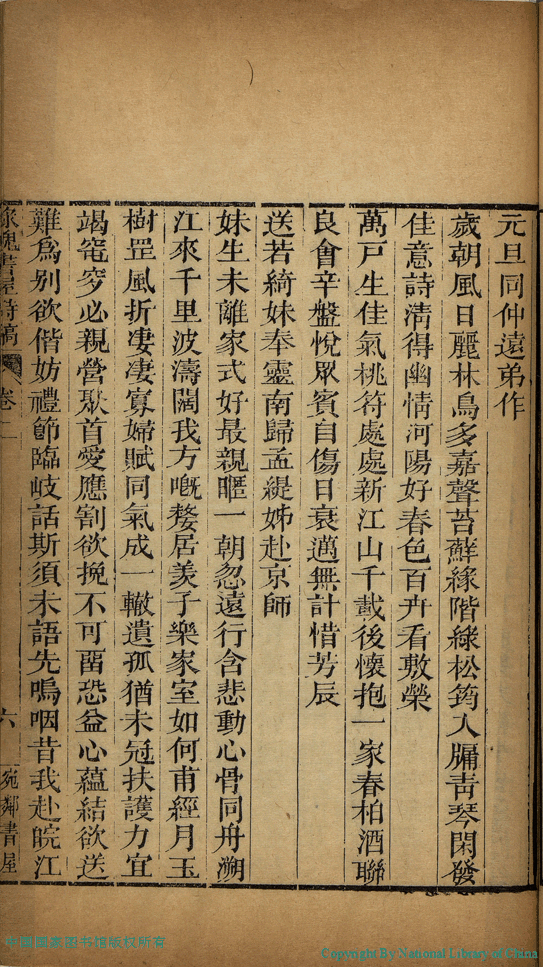 元旦同仲遠弟作
歲朝風日麗林鳥多嘉聲苔蘚緣階綠松筠入牖靑琴閑發
佳意詩清得幽情河陽好春色百卉看敷榮
萬戸生佳氣桃符處處新江山千載後懷抱一家春柏酒聯
良會辛盤悅眾賓自傷日衰邁無計惜芳辰
送若綺妹奉靈南歸孟緹姊赴京師
妹生未離家式好最親暱一朝忽遠行含悲動心骨同舟溯
江來千里波濤闊我方嘅嫠居羡子樂家室如何甫經月玉
樹罡風折凄凄寡婦賦同氣成一轍遺孤猶未冠扶護力宜
竭窀穸必親營聚首愛應割欲挽不可畱恐益心蘊結欲送
難爲别欲偕妨禮節臨岐話斯須未語先嗚咽昔我赴皖江
綠槐書屋詩稿 卷二 六 宛鄰書屋
中國國家图书馆版权所有
Copyright By National Library of China